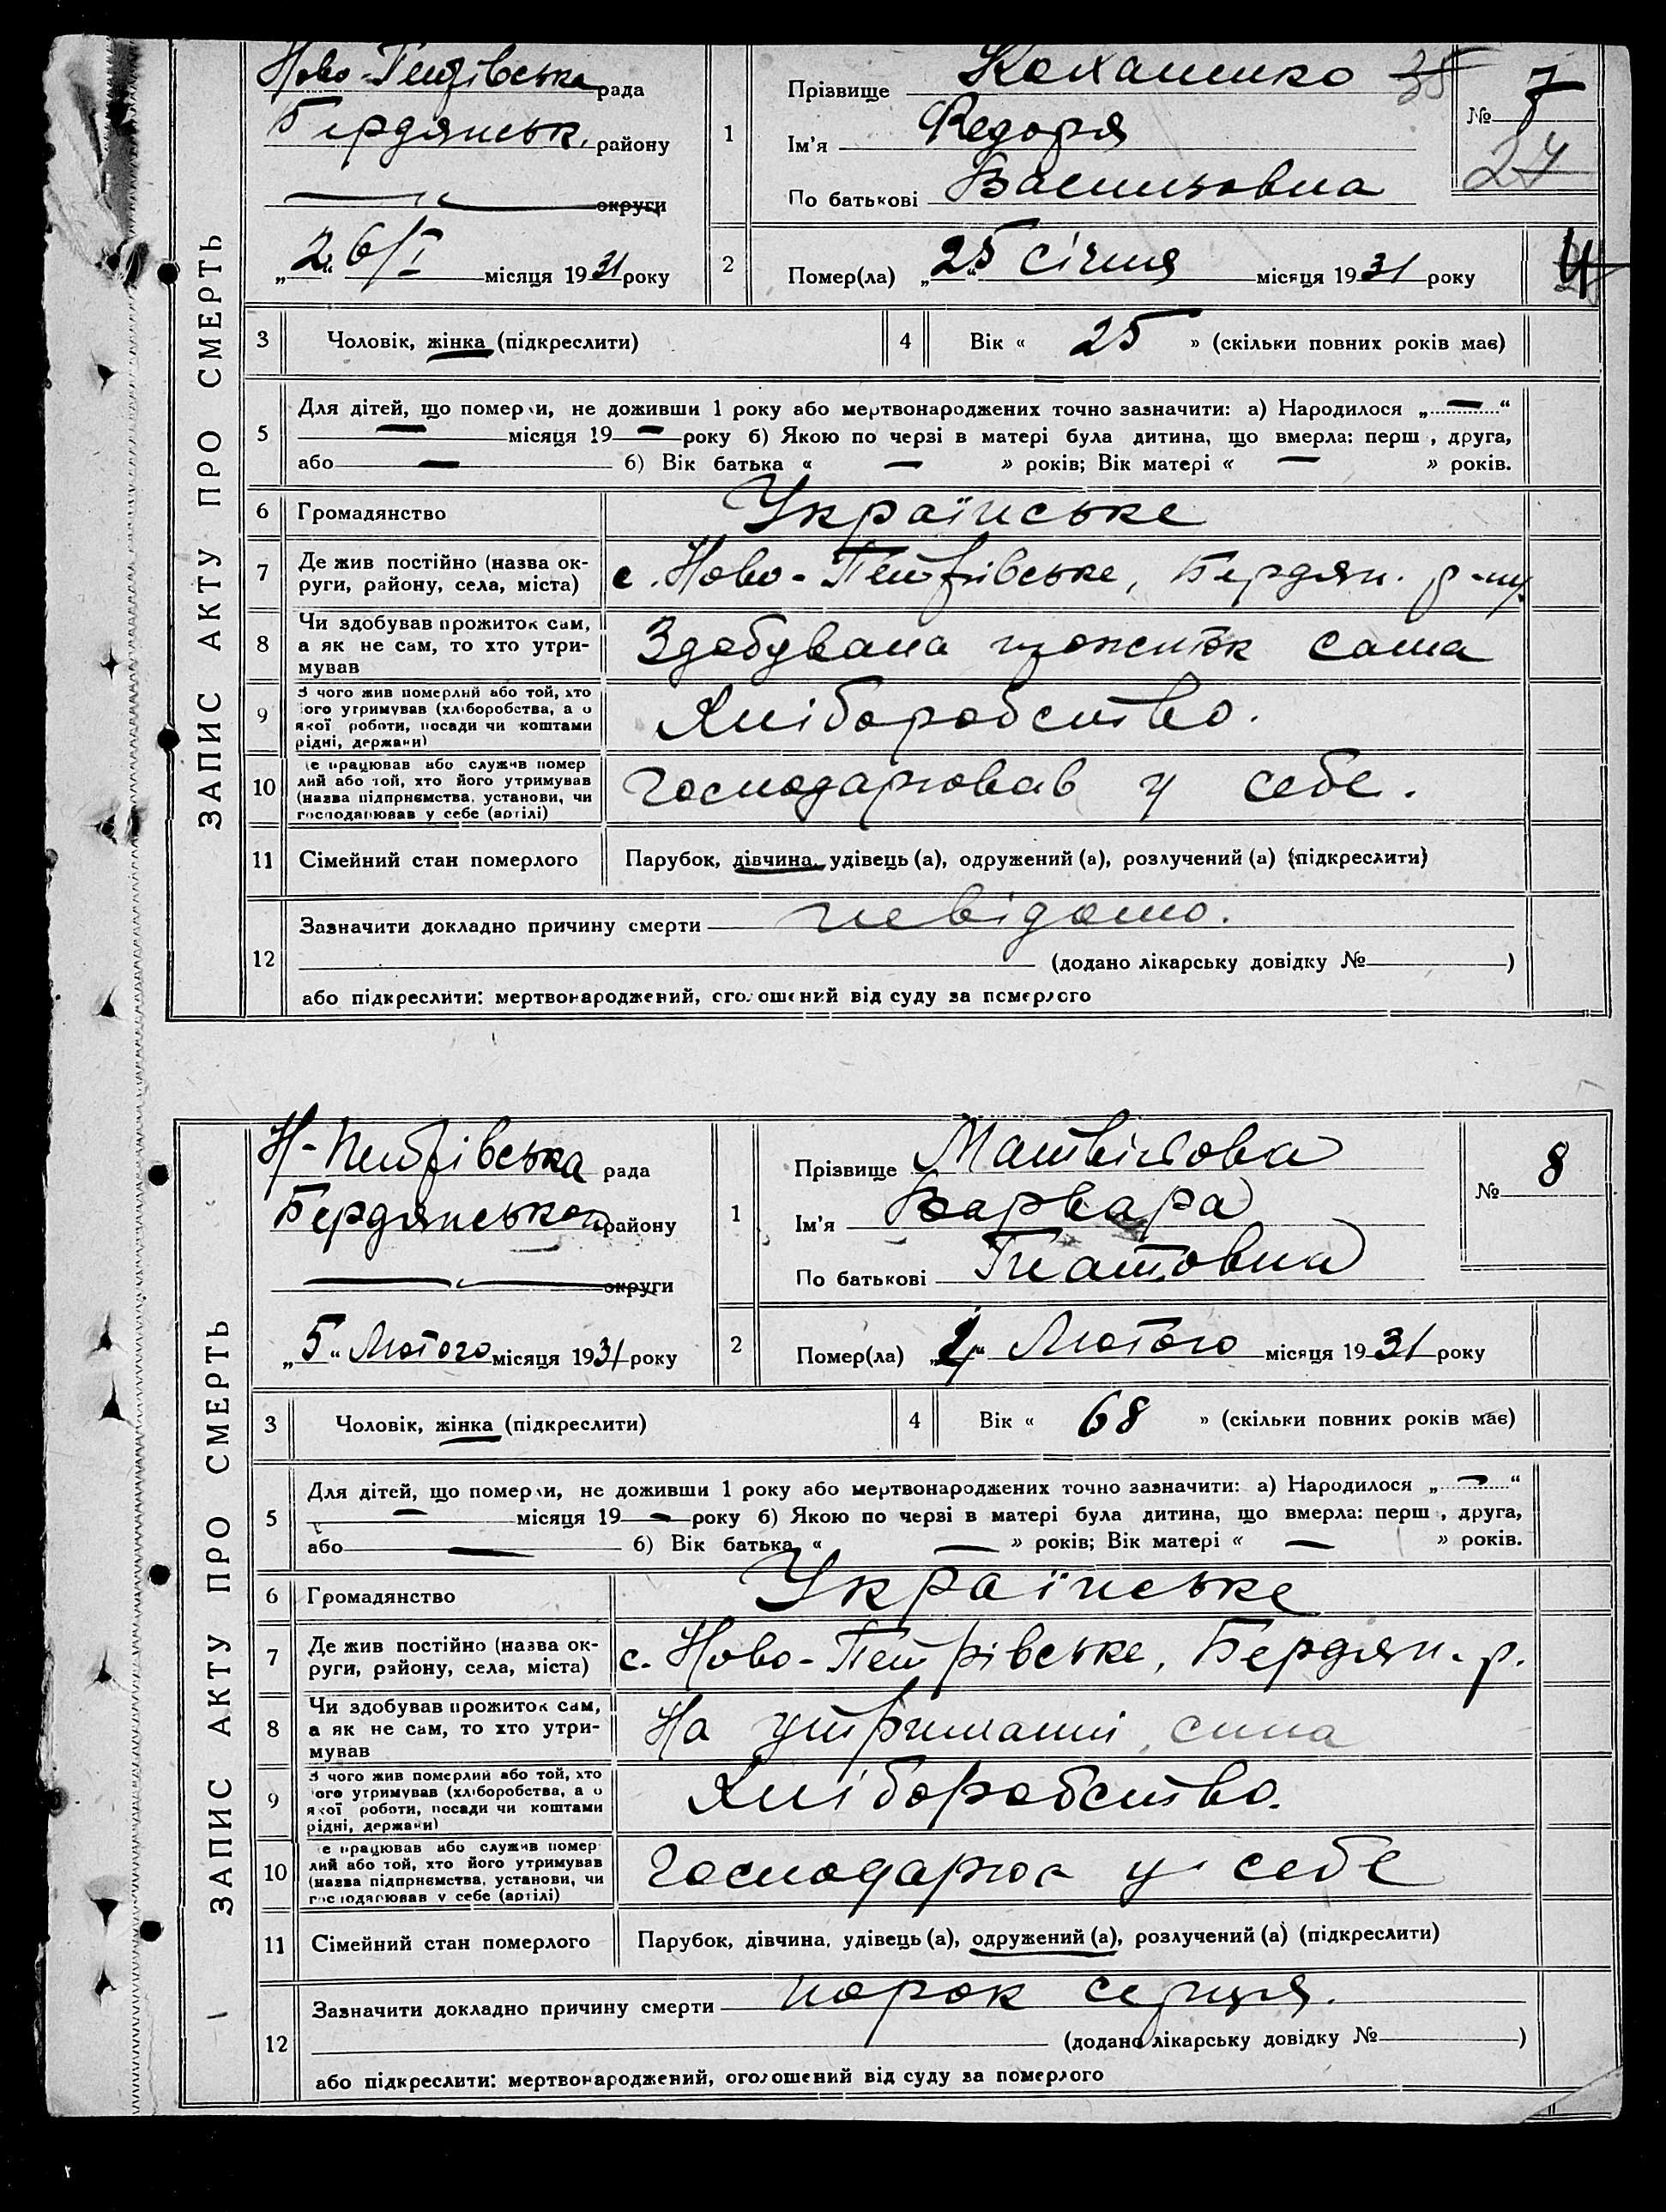 ЗАПИС АКТУ ПРО СМЕРТЬ
Ново-Петрівська рада
Бердянськ. району
округи
„26/I місяця 1931 року
1
Прізвище Коханенко 35
Ім'я Федора
По батькові Василовна
№ 7
27
2
Помер(ла) „25" січня місяця 1931 року
4
3 Чоловік, жінка (підкреслити)
4 Вік « 25 » (скільки повних років має)
5
Для дітей, що померли, не доживши 1 року або мертвонароджених точно зазначити: а) Народилося „ — “
— місяця 19 — року б) Якою по черзі в матері була дитина, що вмерла: перш , друга,
або — б) Вік батька « — » років; Вік матері « — » років.
6 Громадянство Українське
7 Де жив постійно (назва ок-
руги, району, села, міста) с. Ново-Петрівське, Бердян. р-ну
8 Чи здобував прожиток сам,
а як не сам, то хто утри-
мував Здобувала прожиток сама
9 З чого жив померлий або той, хто
ого утримував (хліборобства, а о
якої роботи, посади чи коштами
рідні, держави) Хліборобство.
10 е працював або служив помер
лий або той, хто його утримував
(назва підприємства, установи, чи
господарював у себе (артілі) Господарював у себе.
11 Сімейний стан померлого Парубок, дівчина, удівець (а), одружений (а), розлучений (а) (підкреслити)
12
Зазначити докладно причину смерти невідомо.
(додано лікарську довідку № )
або підкреслити: мертвонароджений, оголошений від суду за померлого
ЗАПИС АКТУ ПРО СМЕРТЬ
Н-Петрівська рада
Бердянськ району
округи
„5“ Лютого місяця 1931 року
1
Прізвище Матвіяова
Ім'я Варвара
По батькові Гнатовна
№ 8
2
Помер(ла) Лютого місяця 1931 року
3 Чоловік, жінка (підкреслити)
4 Вік « 68 » (скільки повних років має)
5
Для дітей, що померли, не доживши 1 року або мертвонароджених точно зазначити: а) Народилося „ — “
— місяця 19 — року б) Якою по черзі в матері була дитина, що вмерла: перш , друга,
або — б) Вік батька « — » років; Вік матері « — » років.
6 Громадянство Українське
7 Де жив постійно (назва ок-
руги, району, села, міста) с. Ново-Петрівське, Бердян. р.
8 Чи здобував прожиток сам,
а як не сам, то хто утри-
мував На утриманні сина
9 З чого жив померлий або той, хто
ого утримував (хліборобства, а о
якої роботи, посади чи коштами
рідні, держави) Хліборобство.
10 е працював або служив помер
лий або той, хто його утримував
(назва підприємства, установи, чи
господарював у себе (артілі) Господарює у себе
11 Сімейний стан померлого Парубок, дівчина, удівець (а), одружений (а), розлучений (а) (підкреслити)
12
Зазначити докладно причину смерти порок серця.
(додано лікарську довідку № )
або підкреслити: мертвонароджений, оголошений від суду за померлого